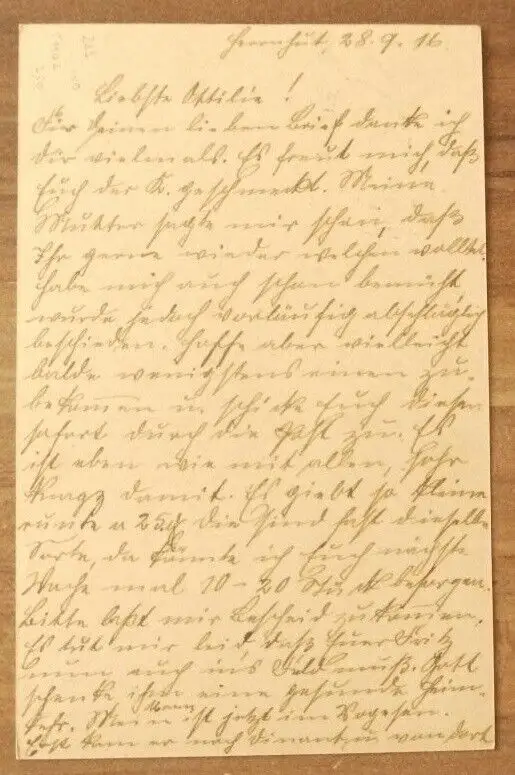 Herrnhut, 28.9.16.
Liebste Ottilie!
Für Deinen lieben Brief danke ich
Dir vielmals. Es freut mich, daß
Euch der K. geschmeckt. Meine
Mutter sagte mir schon, daß
Ihr gerne wieder welchen wolltet,
habe mich auch schon bemüht
wurde jedoch vorläufig abschläglich
beschieden. Hoffe aber vielleicht
balde wenigstens einen zu-
bekommen u. schicke Euch diesen
sofort durch die Post zu. Es
ist eben wie mit allen, sehr
knapp damit. Es giebt so kleine
runde a 25 die sind fast dieselbe
Sorte, da könnte ich Euch nächste
Woche mal 10-20 Stück besorgen.
Bitte laßt mir Bescheid zukommen.
Es tut mir leid daß Euer Fritz
nun auch ins Feld muß. Gott
schenke ihm eine gesunde Heim-
kehr. Mein Mann ist jetzt im Vogesen.
Erst kam er nach Dinant u. von dort